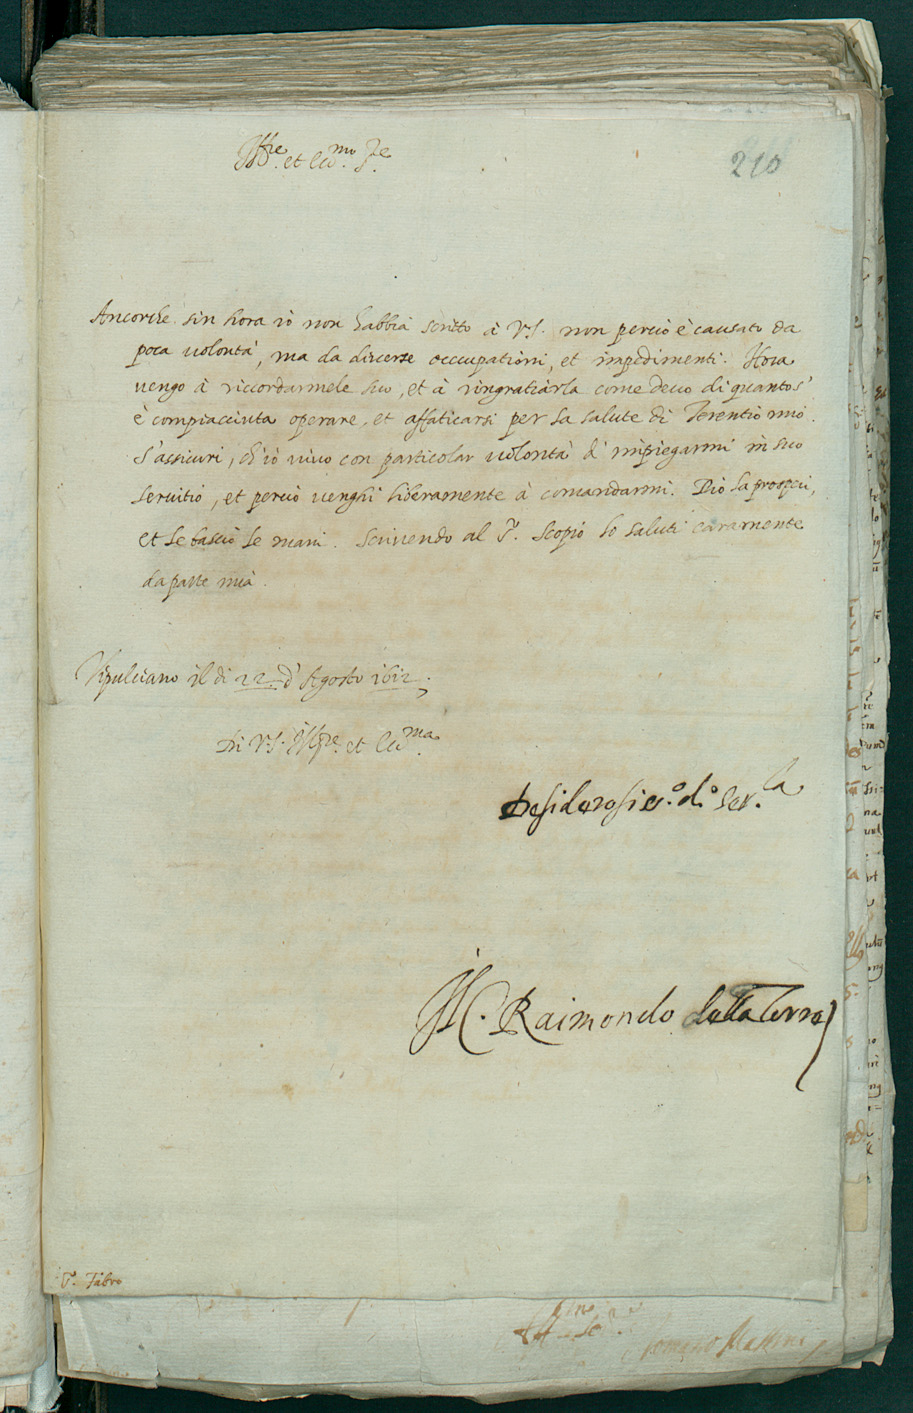 Ill.re et Ecc.mo S.re
210
Ancorche sin hora io non habbia scritto à V.S. non perciò è causato da
poca uolontà, ma da diuerse occupationi, et impedimenti. Hora
uengo à riccordarmele suo, et à ringratiarla come deuo di quanto s'
è compiacciuta operare, et affaticarsi per la salute di Terentio mio.
S'assicuri, ch'io uiuo con particolar uolontà d'impiegarmi in suo
seruitio, et perciò uenghi liberamente à comandarmi. Dio la prosperi,
et le bascio le mani. Scriuendo al S.r Scopio lo saluti caramente
da parte mia.
il di 22. d'Agosto 1612.
Di V.S. Ill.re et Ecc.ma
Desiderosiss.o di ser.la
Raimondo della Torre
S.r Fabro